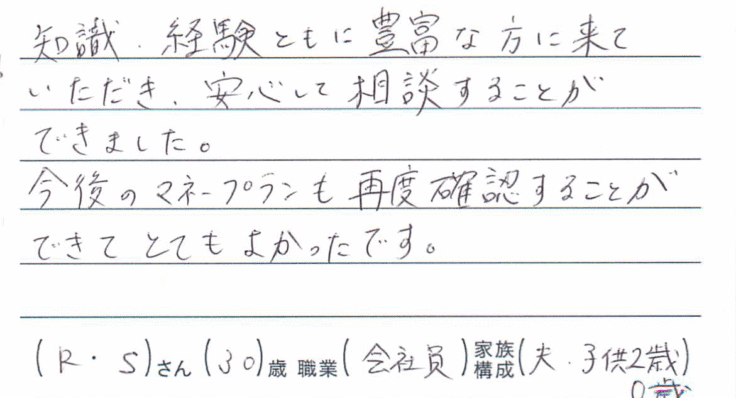 知識、経験ともに豊富な方に来て
いただき、安心して相談することが
できました。
今後のマネープランも再度確認することが
できてとてもよかったです。
(R・S)さん(30)歳 職業(会社員)家族構成(夫・子供2歳)
0歳